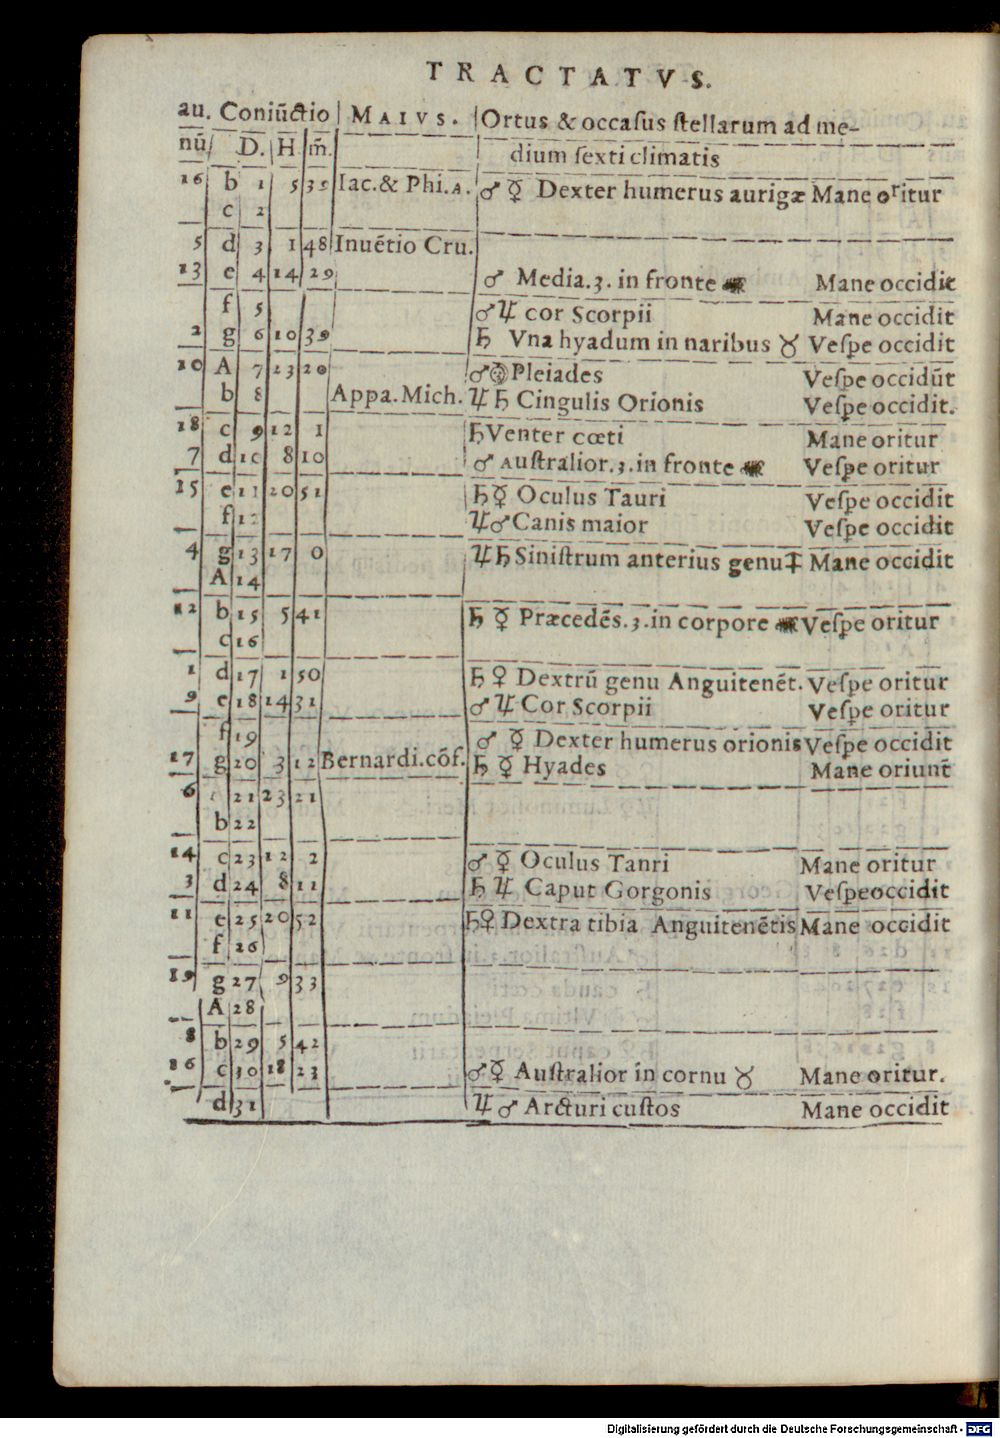 TRACTATVS.
au. Coniūctio | MAIVS. | Ortus & occaſus ſtellarum ad me-
nū D. H m̄. dium ſexti climatis
16 b 1 5 35 Iac.& Phi.A. ♂ ☿ Dexter humerus aurigæ Mane oritur
c 2
5 d 3 1 48 Inuētio Cru.
13 e 4 14 29 ♂ Media.3. in fronte Mane occidit
f 5 ♂ ♃ cor Scorpii Mane occidit
2 g 6 10 39 ♄ Vna hyadum in naribus ♉ Veſpe occidit
10 A 7 23 20 ♂ Pleiades Veſpe occidūt
b 8 Appa.Mich. ♃ ♄ Cingulis Orionis Veſpe occidit.
18 c 9 12 1 ♄ Venter cœti Mane oritur
7 d 10 8 10 ♂ Auſtralior.3.in fronte Veſpe oritur
15 e 11 20 51 ♄ ☿ Oculus Tauri Veſpe occidit
f 12 ♃ ♂ Canis maior Veſpe occidit
4 g 13 17 0 ♃ ♄ Siniſtrum anterius genu ♐ Mane occidit
A 14
12 b 15 5 41 ♄ ☿ Præcedēs.3.in corpore Veſpe oritur
c 16
1 d 17 1 50 ♄ ♀ Dextrū genu Anguitenēt. Veſpe oritur
9 e 18 14 31 ♂ ♃ Cor Scorpii Veſpe oritur
f 19 ♂ ☿ Dexter humerus orionis Veſpe occidit
17 g 20 3 12 Bernardi.cōf. ♄ ☿ Hyades Mane oriunt̄
6 21 23 21
b 22
14 c 23 12 2 ♂ ☿ Oculus Tanri Mane oritur
3 d 24 8 11 ♄ ♃ Caput Gorgonis Veſpeoccidit
11 e 25 20 52 ♄ ♀ Dextra tibia Anguitenētis Mane occidit
f 26
19 g 27 9 33
A 28
8 b 29 5 42
16 c 30 18 23 ♂ ☿ Auſtralior in cornu ♉ Mane oritur.
d 31 ♃ ♂ Arcturi cuſtos Mane occidit
Digitalisierung gefördert durch die Deutsche Forschungsgemeinschaft - DFG